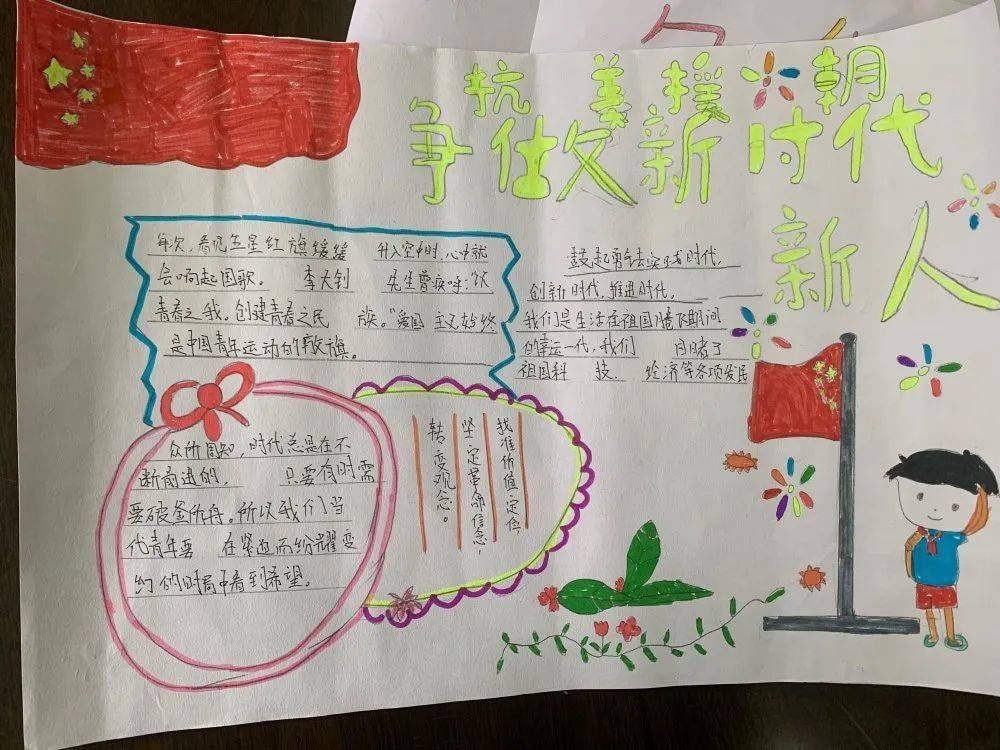 抗美援朝
争做新时代
新人
每次,看见五星红旗缓缓 升入空中时,心中就
会响起国歌。 李大钊 先生曾疾呼:"以
青春之我。创建青春之民 族。"爱国主义始终
是中国青年运动的 旗。
鼓起勇气去实践时代,
创新时代,推进时代。
我们是生活在祖国腾飞期间
的幸运一代,我们 目睹了
祖国科 技、 经济等各项发展
众所周知,时代总是在不
断前进的, 只要有时需
要破釜 舟。所以我们当
代青年要 在紧迫而纷 变
幻的时局中看到希望。
找准价值定位,
坚定革命信念,
转变观念。